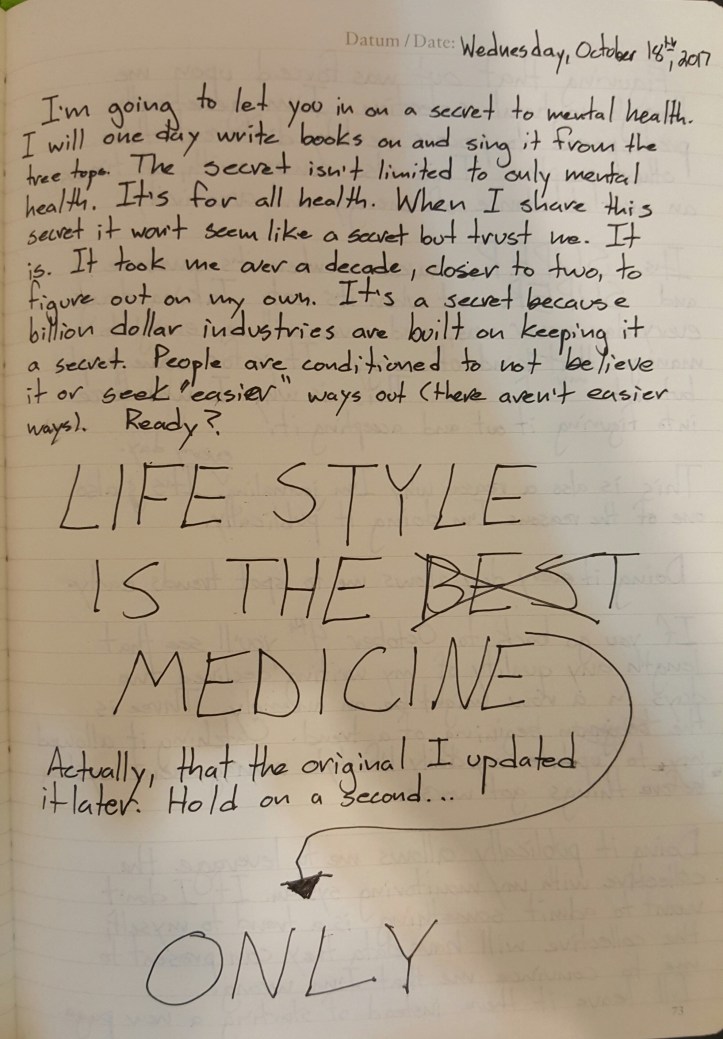 Datum / Date: Wednesday, October 18th, 2017
I'm going to let you in on a secret to mental health.
I will one day write books on and sing it from the
tree tops. The secret isn't limited to only mental
health. It's for all health. When I share this
secret it won't seem like a secret but trust me. It
is. It took me over a decade, closer to two, to
figure out on my own. It's a secret because
billion dollar industries are built on keeping it
a secret. People are conditioned to not believe
it or seek "easier" ways out (there aren't easier
ways). Ready?
LIFE STYLE
IS THE BEST
MEDICINE
Actually, that the original I updated
it later. Hold on a second...
ONLY
73